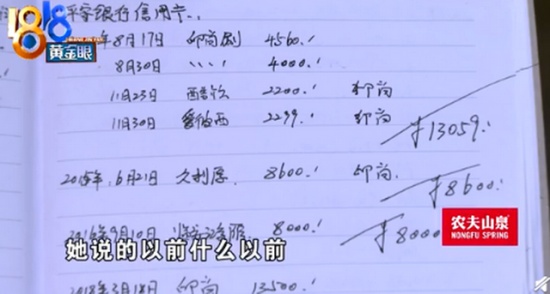 平安银行信用卡
1818
黄金眼
年8月17日 印尚 4560.
8月30日 4000.
11月23日 2200. 印尚
11月30日 爱伯西 2299. 印尚
¥13059.
2015年6月21日 久利厚 8600. 印尚
¥8600
2016年9月10日 8000.
¥8000
农夫山泉
NONGFU SPRING
她说的以前什么以前
2018年3月18日 印尚 13500.